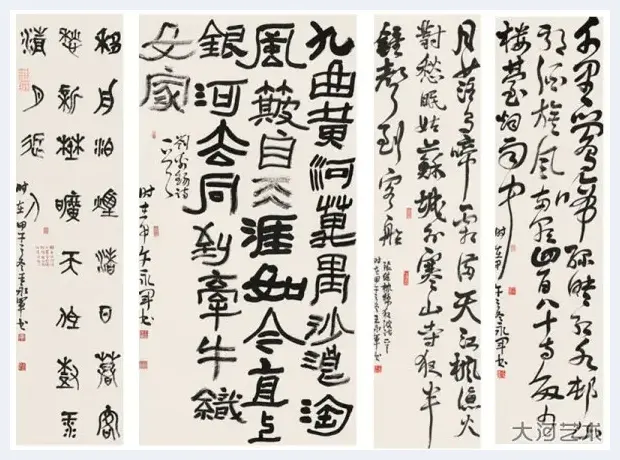 千里鶯啼綠映紅水村山
郭酒旗風南朝四百八十寺多少
樓臺烟雨中
时在甲午之冬永軍书
月落烏啼霜滿天江楓漁火
對愁眠姑蘇城外寒山寺夜半
鐘聲到客船
張繼楓橋夜泊詩一首
时在甲午之冬王永軍书
九曲黄河萬里沙浪淘
風簸自天涯如今直上
銀河去同到牽牛織
女家
劉禹錫詩
时在甲午永軍书
移舟泊煙渚日暮客
愁新野曠天低樹江
清月近人
时在甲午之冬王永軍书
大河艺术